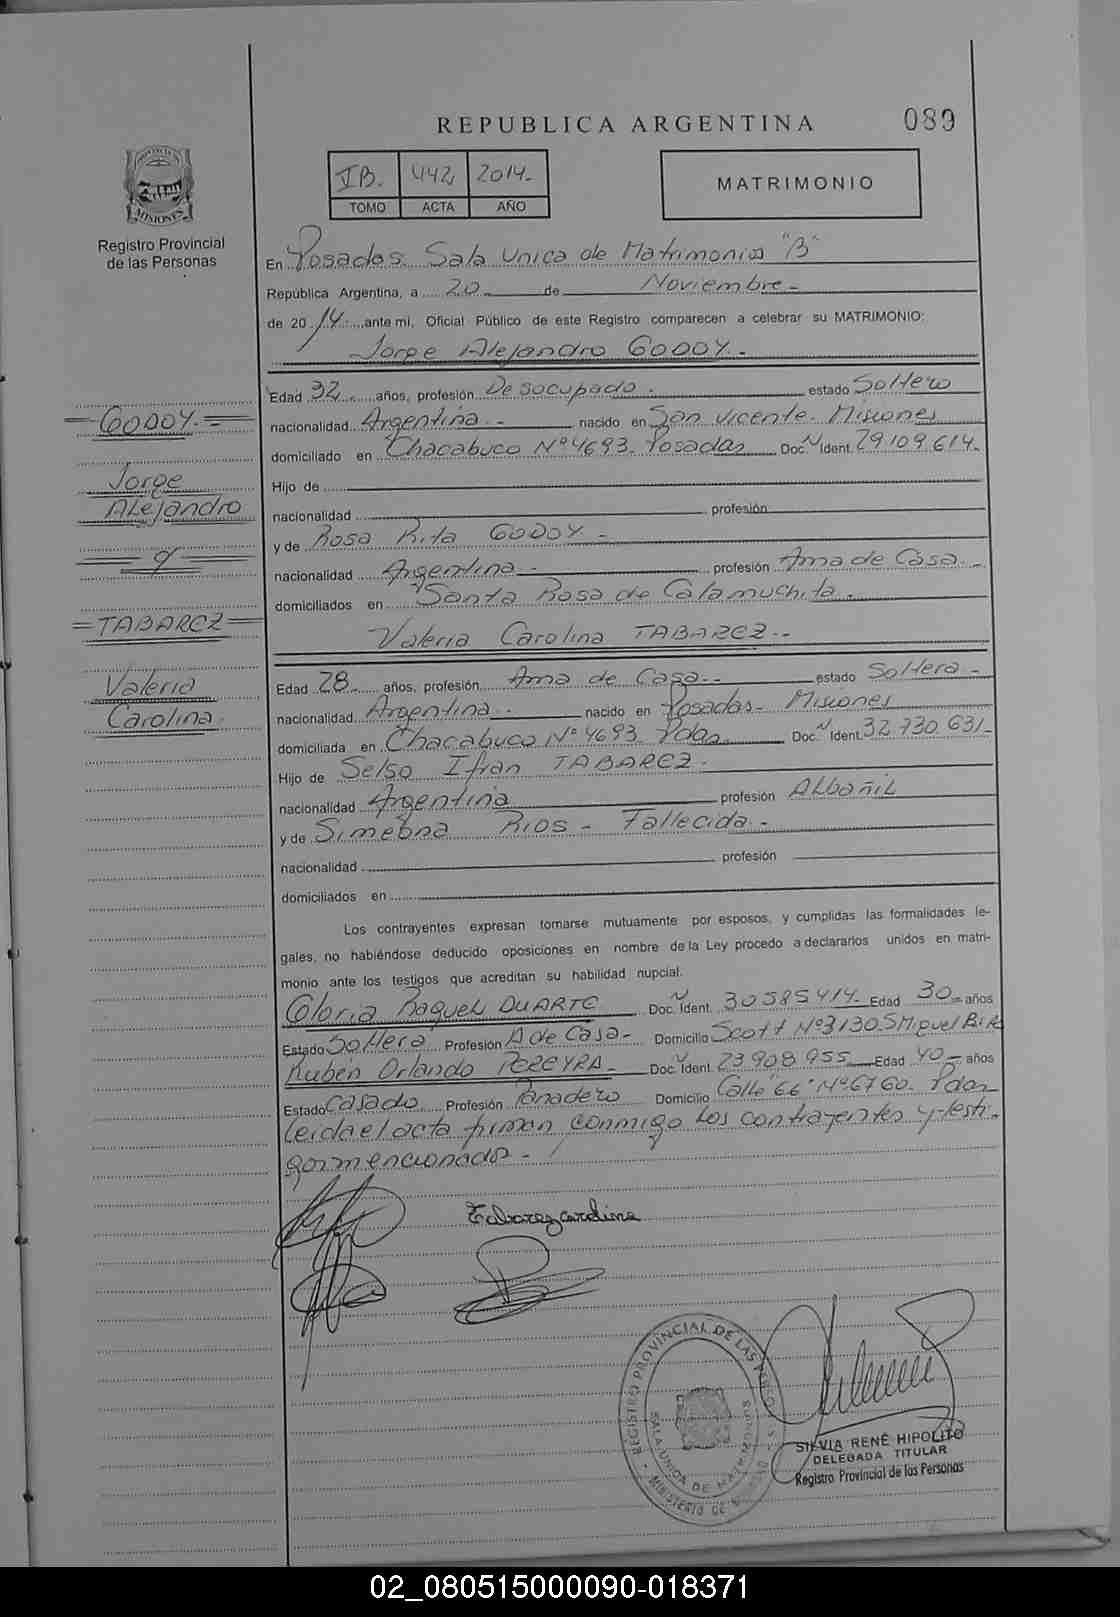 REPUBLICA ARGENTINA 089
PROVINCIA DE MISIONES
Registro Provincial
de las Personas
IB. 442 2014.-
TOMO ACTA AÑO
MATRIMONIO
En Posadas. Sala Unica de Matrimonios "B"
República Argentina, a 20 de Noviembre.-
de 2014 ante mi, Oficial Público de este Registro comparecen a celebrar su MATRIMONIO:
Jorge Alejandro GODOY.-
Edad 32 años, profesión Desocupado. estado Soltero
nacionalidad Argentina.- nacido en San Vicente. Misiones
domiciliado en Chacabuco Nº 4693. Posadas Doc. Ident. 29.109.614.-
Hijo de
nacionalidad profesión
y de Rosa Rita GODOY.-
nacionalidad Argentina.- profesión Ama de Casa.-
domiciliados en Santa Rosa de Calamuchita.
Valeria Carolina TABAREZ.-
Edad 28 años, profesión Ama de Casa.- estado Soltera-
nacionalidad Argentina.- nacido en Posadas- Misiones
domiciliada en Chacabuco Nº 4693. Pdas. Doc. Ident. 32.730.631-
Hijo de Selso Ifran TABAREZ.
nacionalidad Argentina profesión ALbañiL
y de Simeona RIOS- Fallecida.-
nacionalidad profesión
domiciliados en
GODOY.
Jorge
ALejandro
y
TABAREZ
Valeria
Carolina.
Los contrayentes expresan tomarse mutuamente por esposos, y cumplidas las formalidades le-
gales, no habiéndose deducido oposiciones en nombre de la Ley procedo a declararlos unidos en matri-
monio ante los testigos que acreditan su habilidad nupcial.
Gloria RaqueL DUARTE Doc. Ident. 30585414- Edad 30- años
Estado Soltera Profesión A de Casa- Domicilio Scott Nº 3130 S Miguel
Rubén Orlando PEREYRA- Doc. Ident. 23.908.955 Edad 40- años
Estado Casado Profesión Panadero Domicilio Calle "66" Nº 6760. Pdas
Leida el acta firman conmigo Los contrayentes y testi-
gos mencionados.-
Tabarez carolina
REGISTRO PROVINCIAL DE LAS PERSONAS
SALA UNICA DE MATRIMONIOS
MINISTERIO DE
SILVIA RENÉ HIPOLITO
DELEGADA TITULAR
Registro Provincial de las Personas
02_080515000090-018371